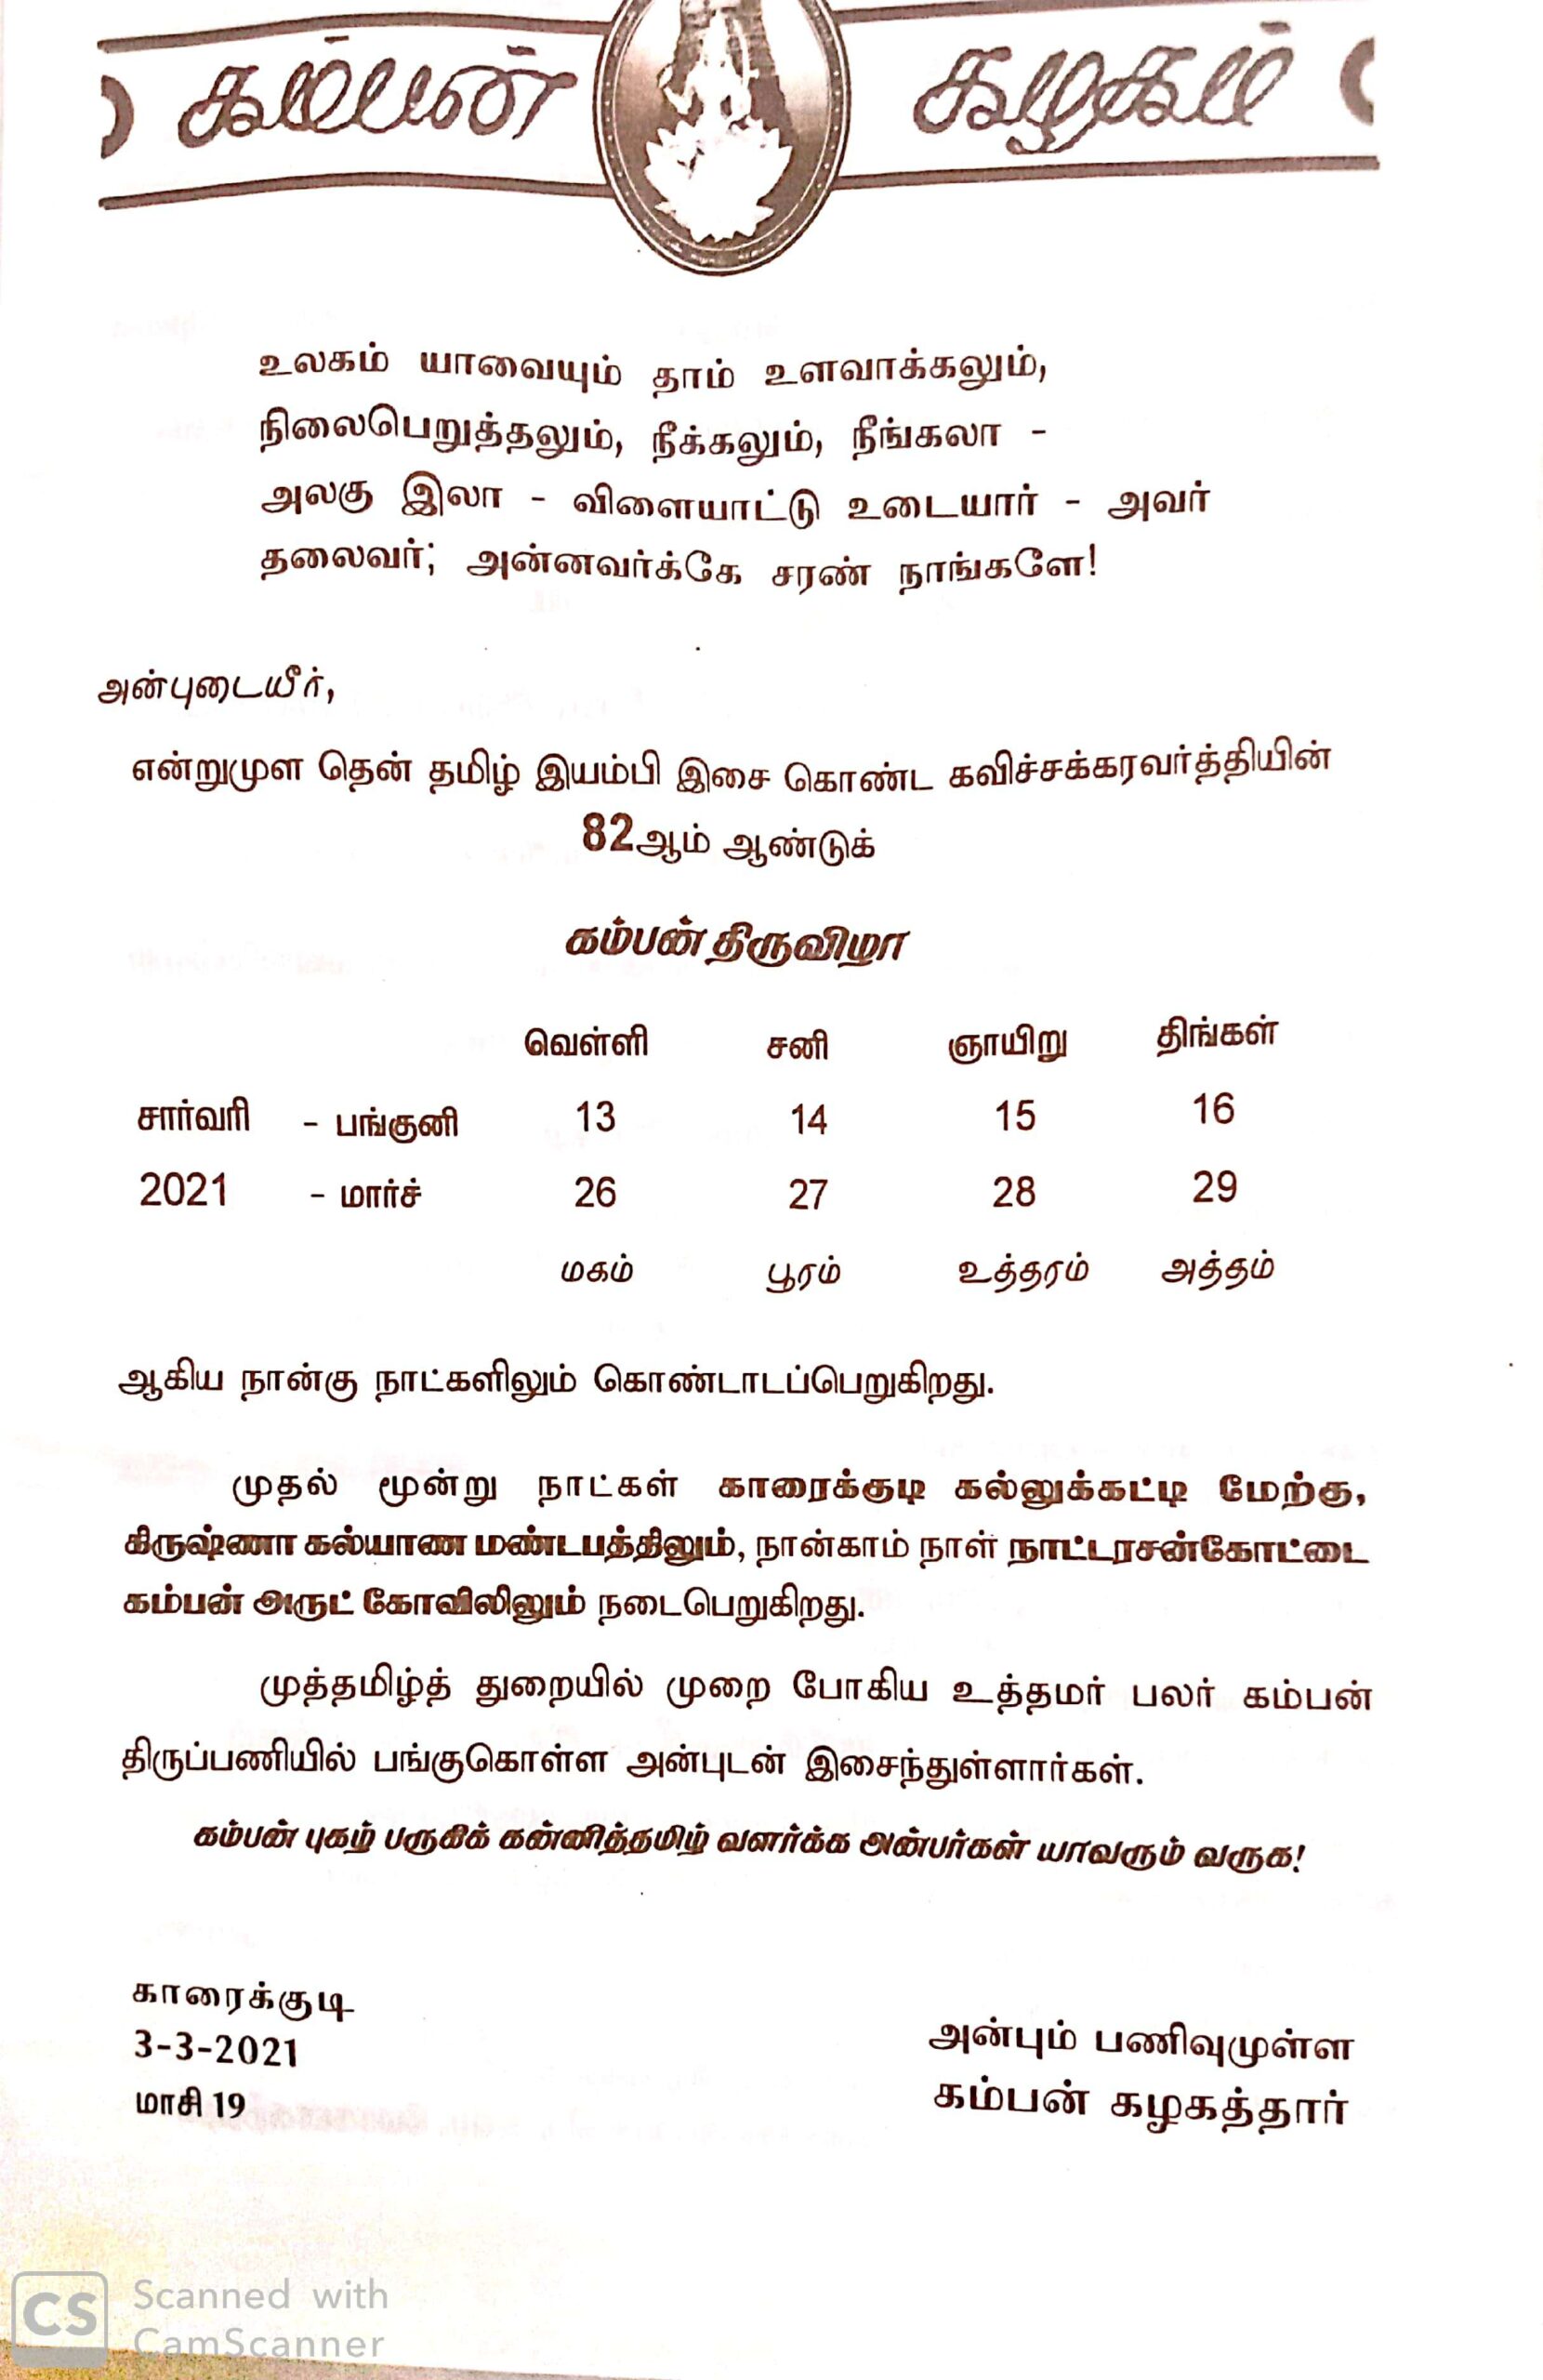 கம்பன் கழகம்
உலகம் யாவையும் தாம் உளவாக்கலும்,
நிலைபெறுத்தலும், நீக்கலும், நீங்கலா -
அலகு இலா - விளையாட்டு உடையார் - அவர்
தலைவர்; அன்னவர்க்கே சரண் நாங்களே!
அன்புடையீர்,
என்றுமுள தென் தமிழ் இயம்பி இசை கொண்ட கவிச்சக்கரவர்த்தியின்
82ஆம் ஆண்டுக்
கம்பன் திருவிழா
வெள்ளி சனி ஞாயிறு திங்கள்
சார்வரி - பங்குனி 13 14 15 16
2021 - மார்ச் 26 27 28 29
மகம் பூரம் உத்தரம் அத்தம்
ஆகிய நான்கு நாட்களிலும் கொண்டாடப்பெறுகிறது.
முதல் மூன்று நாட்கள் காரைக்குடி கல்லுக்கட்டி மேற்கு,
கிருஷ்ணா கல்யாண மண்டபத்திலும், நான்காம் நாள் நாட்டரசன்கோட்டை
கம்பன் அருட் கோவிலிலும் நடைபெறுகிறது.
முத்தமிழ்த் துறையில் முறை போகிய உத்தமர் பலர் கம்பன்
திருப்பணியில் பங்குகொள்ள அன்புடன் இசைந்துள்ளார்கள்.
கம்பன் புகழ் பருகிக் கன்னித்தமிழ் வளர்க்க அன்பர்கள் யாவரும் வருக!
காரைக்குடி
3-3-2021
மாசி 19
அன்பும் பணிவுமுள்ள
கம்பன் கழகத்தார்
CS Scanned with
CamScanner